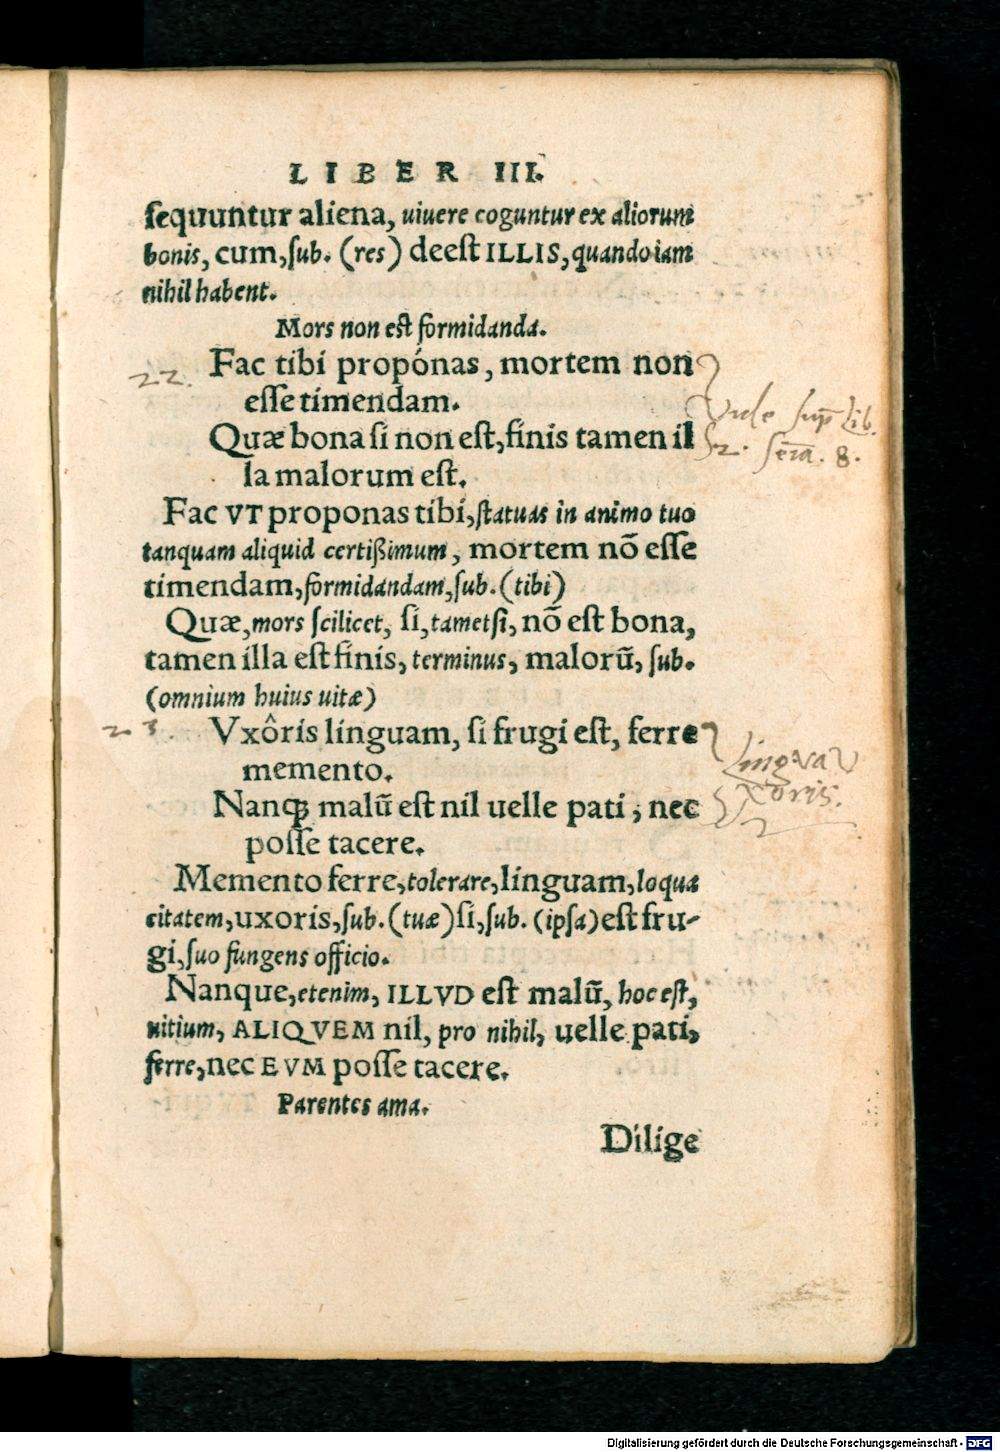 LIBER III.
sequuntur aliena, uiuere coguntur ex aliorum
bonis, cum, sub. (res) deest ILLIS, quando iam
nihil habent.
Mors non est formidanda.
22.
Fac tibi propónas, mortem non
esse timendam.
Quæ bona si non est, finis tamen il
la malorum est.
Vide sup̄ Lib.
2.
8.
Fac VT proponas tibi, statuas in animo tuo
tanquam aliquid certißimum, mortem nō esse
timendam, formidandam, sub. (tibi)
Quæ, mors scilicet, si, tametsi, nō est bona,
tamen illa est finis, terminus, malorū, sub.
(omnium huius uitæ)
23.
Vxôris linguam, si frugi est, ferre
memento.
Nanqꝫ malū est nil uelle pati, nec
posse tacere.
Lingva V
xoris.
Memento ferre, tolerare, linguam, loqua
citatem, uxoris, sub. (tuæ) si, sub. (ipsa) est fru-
gi, suo fungens officio.
Nanque, etenim, ILLVD est malū, hoc est,
uitium, ALIQVEM nil, pro nihil, uelle pati,
ferre, nec EVM posse tacere.
Parentes ama.
Dilige
Digitalisierung gefördert durch die Deutsche Forschungsgemeinschaft - DFG